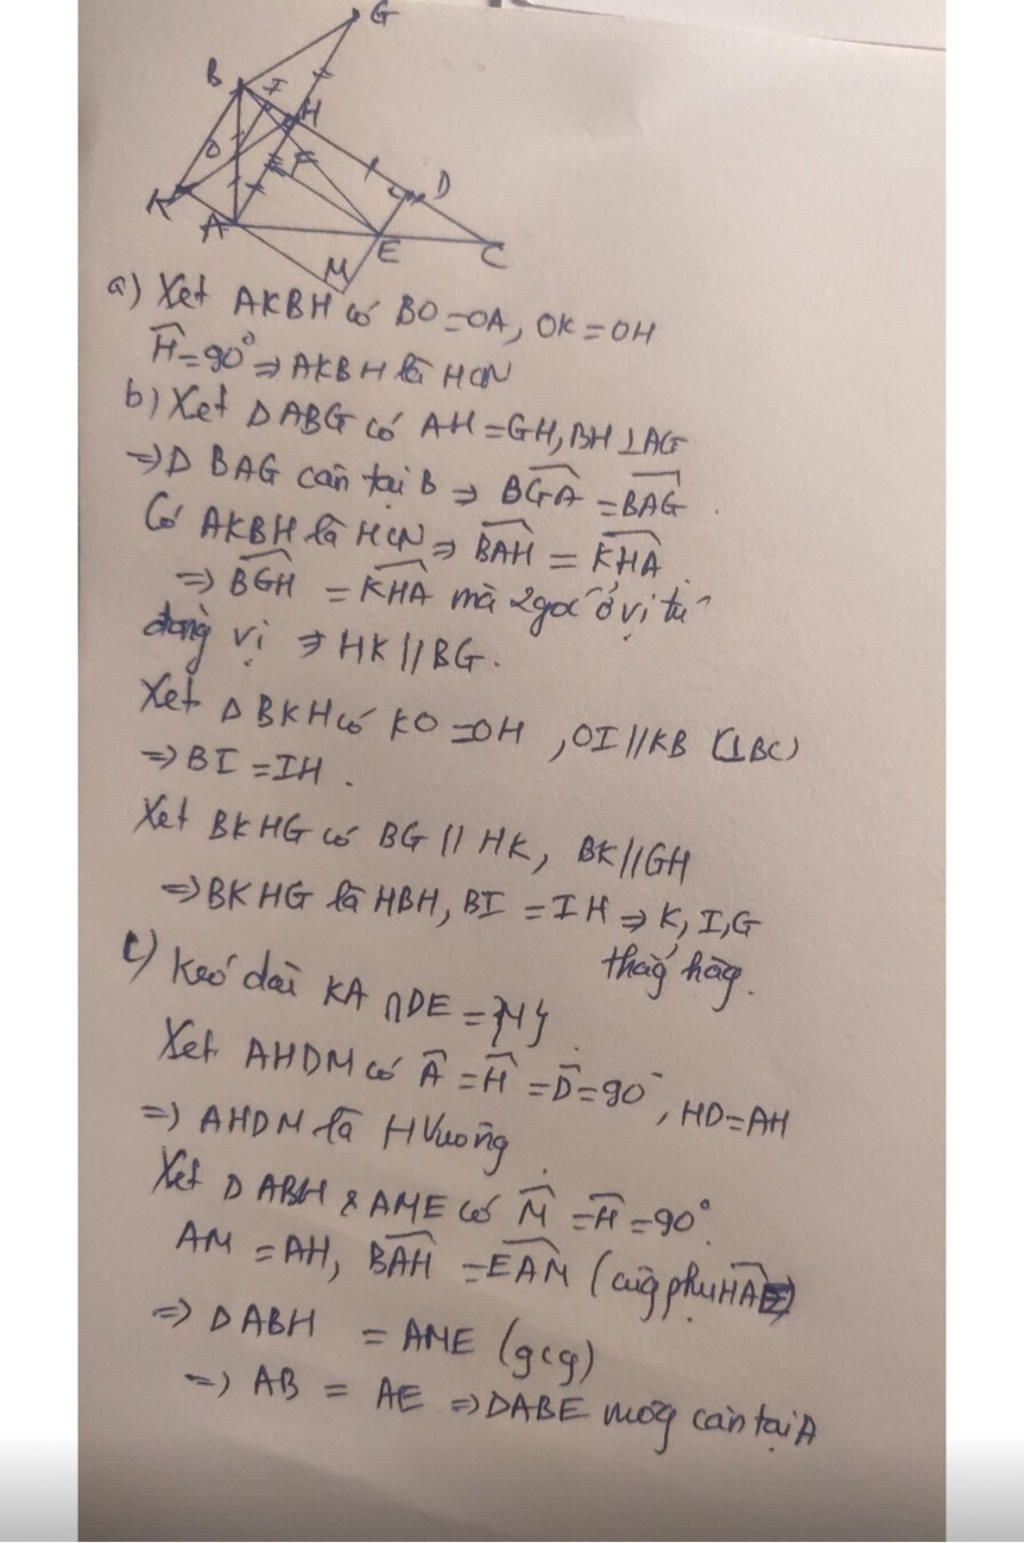 G
B
I
H
O
F
D
K
A
E
C
M
a) Xét AKBH có BO=OA, OK=OH
Ĥ=90° ⇒ AKBH là HCN
b) Xét Δ ABG có AH=GH, BH ⊥ AG
⇒ Δ BAG cân tại B ⇒ BGA = BAG.
Có AKBH là HCN ⇒ BAH = KHA.
⇒ BGH = KHA mà 2 góc ở vị trí
đồng vị ⇒ HK // BG.
Xét Δ BKH có KO=OH, OI // KB (⊥BC)
⇒ BI = IH.
Xét BKHG có BG // HK, BK // GH
⇒ BKHG là HBH, BI = IH ⇒ K, I, G
thẳng hàng.
c) Kéo dài KA ∩ DE = {M}.
Xét AHDM có Â = Ĥ = D̂ = 90°, HD=AH
⇒ AHDM là H Vuông.
Xét Δ ABH & AME có M̂ = Ĥ = 90°.
AM = AH, BAH = EAM (cùng phụ HAE)
⇒ Δ ABH = AME (gcg)
⇒ AB = AE ⇒ Δ ABE vuông cân tại A